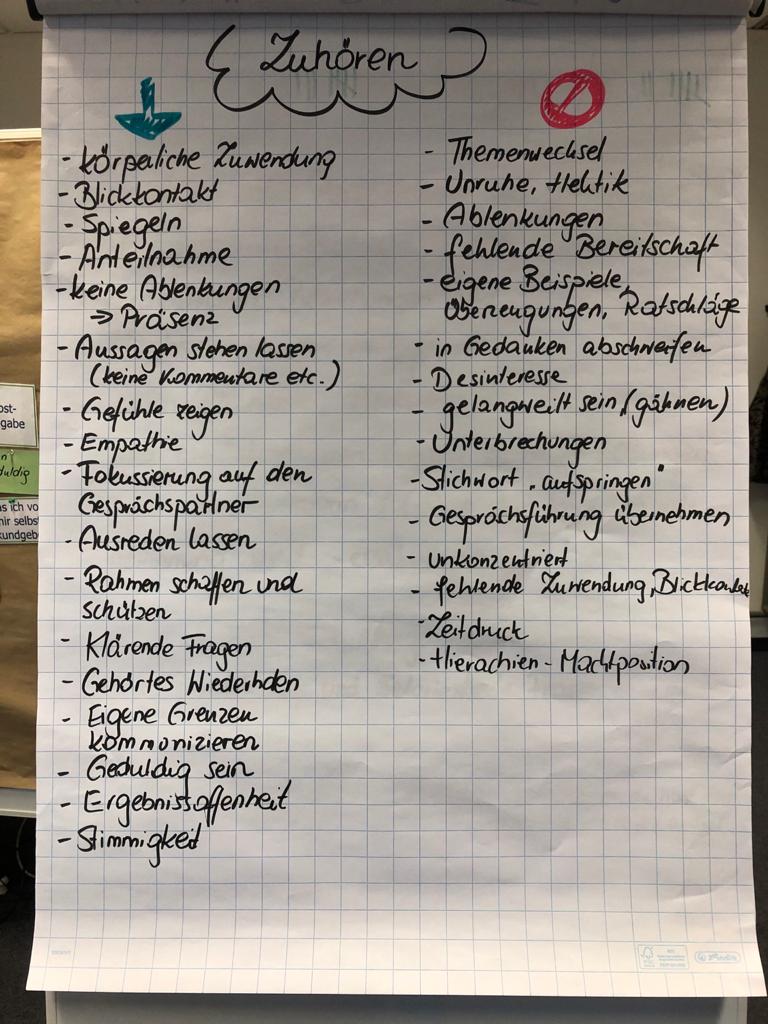 Zuhören
- körperliche Zuwendung
- Blickkontakt
- Spiegeln
- Anteilnahme
- keine Ablenkungen
→ Präsenz
- Aussagen stehen lassen
(keine Kommentare etc.)
- Gefühle zeigen
- Empathie
- Fokussierung auf den
Gesprächspartner
- Ausreden lassen
- Rahmen schaffen und
schützen
- Klärende Fragen
- Gehörtes Wiederholen
- Eigene Grenzen
kommonizieren
- Geduldig sein
- Ergebnissoffenheit
- Stimmigkeit
- Themenwechsel
- Unruhe, Hektik
- Ablenkungen
- fehlende Bereitschaft
- eigene Beispiele,
Überzeugungen, Ratschläge
- in Gedanken abschweifen
- Desinteresse
- gelangweilt sein, (gähnen)
- Unterbrechungen
- Stichwort „aufspringen"
- Gesprächsführung übernehmen
- unkonzentriert
- fehlende Zuwendung, Blickkontakt
- Zeitdruck
- Hierachien - Machtposition
ost-
gabe
duldig
s ich vo
mir selbs
kundgeb
FSC